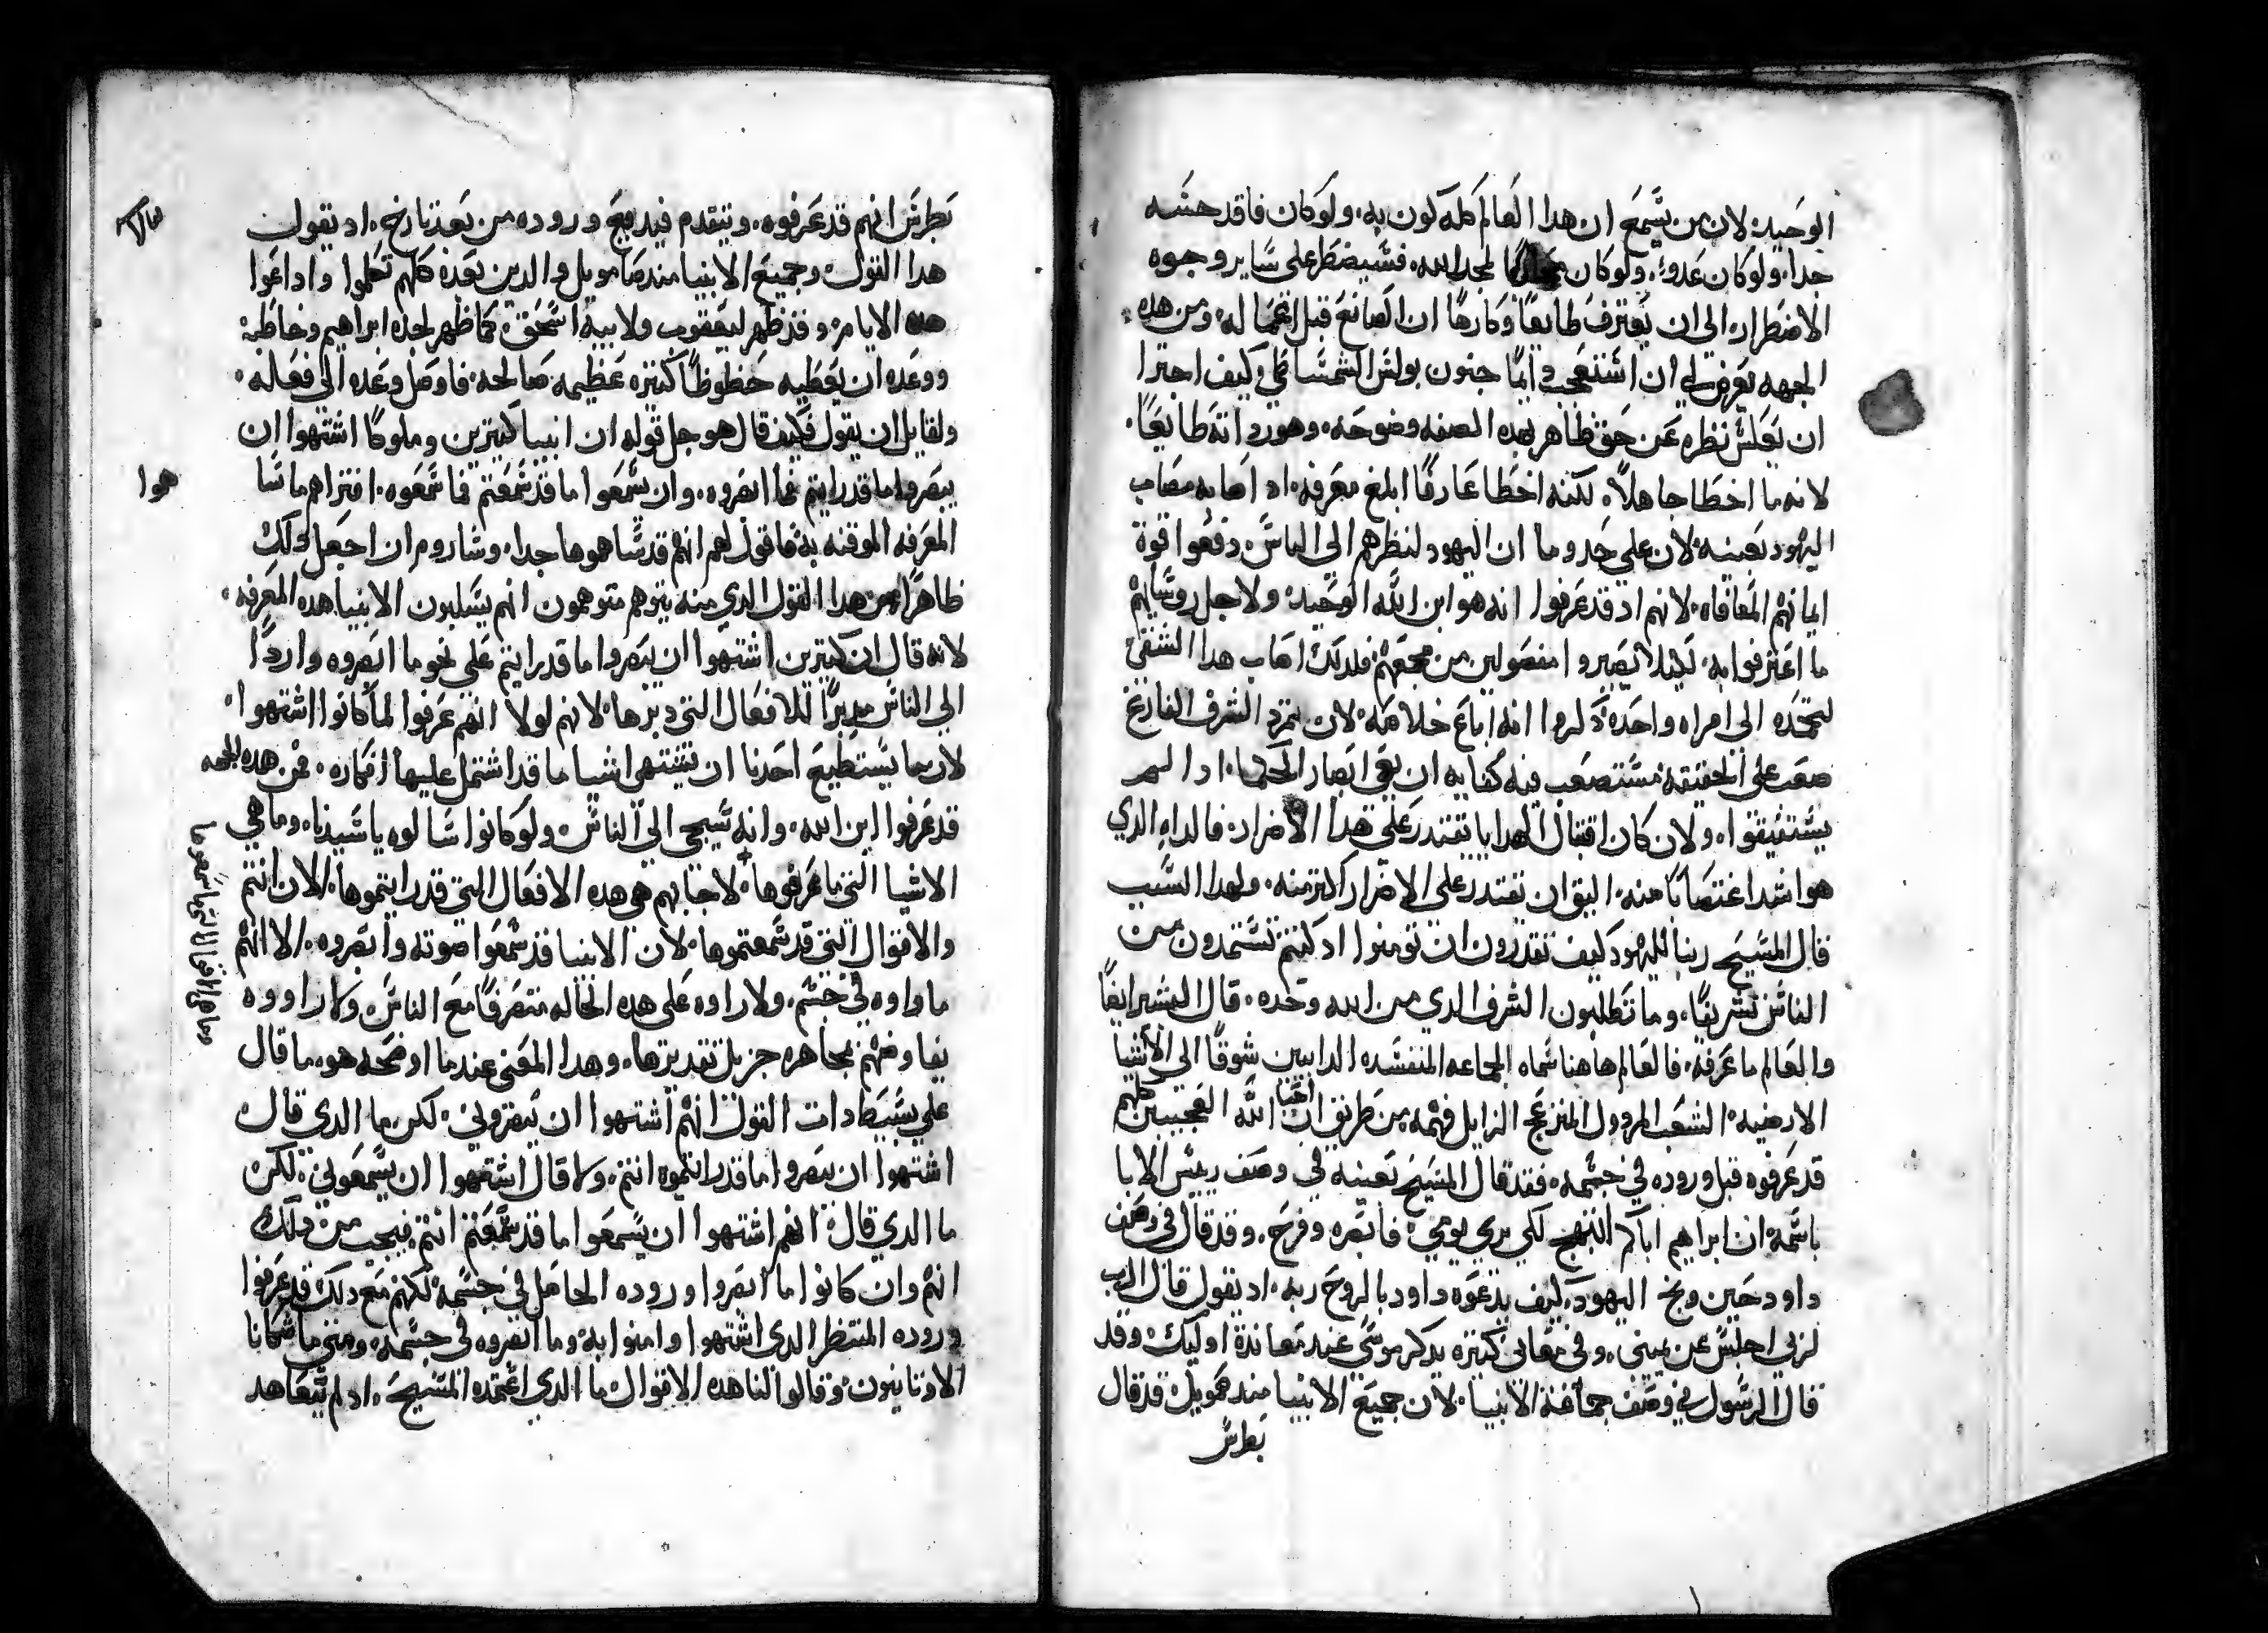 الوحيد. لان من يسمع ان هدا العالم كله كون به. ولو كان فاقد حسه
جدا. ولو كان عدوا. ولو كان لمجد الله. فسيضطر على ساير وجوه
الاضطرار الى ان يعترف طايعًا وكارهًا ان الصانع قبل اعماله. ومن هده
الجهه يعرض لي ان استعجب دايمًا جنون بولس الشمشاطي وكيف اجترا
ان يعلس نظره عن حق ظاهر بهده الصفه وضوحه. وهور داته طايعًا.
لانه ما اخطا جاهلاً. لكنه اخطا عارفًا ابلغ معرفه. اد اصابه مصاب
اليهود بعينه. لان على حد وما ان اليهود لنظرهم الى الناس دفعوا قوة
ايمانهم المعافاه. لانهم اد قد عرفوا انه هو ابن الله الوحيد. ولاجل روسايهم
ما اعترفوا به. ليلا يصيروا مفصولين من مجمعهم فلدلك اصاب هدا الشقي
لتحمده الى امراه واحده دكروا انه اباع خلاصه. لان تمرد الشرف الفارغ
صعب على الحقيقه مستصعب فيه كفايه ان يعمي ابصار الحكما. اد لم
يستفيقوا. ولان كان اقتبال الهدايا تقتدر على هدا الاضرار. فالداء الدي
هو اشد اغتصابًا منه. اليق ان تقتدر على الاضرار اكتر منه. ولهدا السبب
قال المسيح ربنا لليهود كيف تقدرون ان تومنوا اد كنتم تستمدون من
الناس تشريفًا. وما تطلبون الشرف الدي من الله وحده. قال البشير ايضًا
والعالم ما عرفه. فالعالم هاهنا سماه الجماعه المنفسده الدايبين شوقًا الى الاشيا
الارضيه. الشعب المردول المنزعج الزايل فهمه من طريق ان احبا الله العجيبين كلهم
قد عرفوه قبل وروده في جسمه. فقد قال المسيح بعينه في وصف رييس الابا
باسمه. ان ابراهيم اباكم ابتهج لكي يري يومي. فابصره وفرح. وقد قال في وصف
داود حين وبخ اليهود. كيف يدعوه داود بالروح ربه. اد يقول قال الرب
لربي اجلس عن يميني. وفي معاني كتيره يدكر موسى عند معاندة اوليك. وقد
قال الرسول في وصف جماعة الانبيا. لان جميع الانبيا مند صمويل قد قال
بطرس
بطرس انهم قد عرفوه. ويتقدم فيديع وروده من بعد تارخ. اد يقول
هدا القول. وجميع الانبيا مند صامويل والدين بعده كلهم تكلموا واداعوا
هده الايام. وقد ظهر ليعقوب ولابيه اسحق. كما ظهر لجده ابراهيم وخاطبه
ووعده ان يعطيه حظوظًا كتيره عظيمه صالحه. فاوصل وعده الى فعاله.
ولقايل ان يقول فكيف قال هو جل قوله ان انبيا كتيرين وملوكًا اشتهوا ان
يبصروا ما قد رايتم فما ابصروه. وان يسمعوا ما قد سمعتم فما سمعوه. افتراهم ما شا
هوا
المعرفه الموقنه به. فاقول لهم انهم قد شاهوها جدا. وساروم ان اجعل دلك
ظاهرًا من هدا القول الدي منه يتوهم متوهمون انهم يسلبون الانبيا هده المعرفه.
لانه قال ان كتيرين اشتهوا ان يبصروا ما قد رايتم على نحو ما ابصروه واردًا
الى الناس مدبرًا للافعال التي دبرها. لانهم لولا انهم عرفوا لما كانوا اشتهوا.
لان ما يستطيع احدنا ان يشتهي اشيا ما قد اشتمل عليها افكاره. فمن هده الجهه
قد عرفوا ابن الله. وانه سيجي الى الناس. ولو كانوا سالوه يا سيدنا. وما هي
الاشيا التي ما عرفوها. لاجابهم هي هده الافعال التي قد رايتموها. الان انتم
وما هي الاقوال التي ما سمعوها
والاقوال التي قد سمعتموها. لان الانبيا قد سمعوا صوته وابصروه. الا انهم
ما راوه في جسم. ولا راوه على هده الحاله متصرفًا مع الناس. ولا راووه
يفاوضهم بمجاهره جزيل تقديرها. وهدا المعنى عندما اوضحه هو. ما قال
على بسيط دات القول انهم اشتهوا ان يبصروني. لكن ما الدي قال
اشتهوا ان يبصروا ما قد رايتموه انتم. ولا قال اشتهوا ان يسمعوني. لكن
ما الدي قال. انهم اشتهوا ان يسمعوا ما قد سمعتم انتم. فيجب من دلك
انهم وان كانوا ما ابصروا وروده الحاصل في جسمه. لكنهم مع دلك قد عرفوا
وروده المنتظر الدي اشتهوا وامنوا به. وما ابصروه في جسمه. ومتى ما شكانا
الاوتانيون وقالوا لنا هده الاقوال ما الدي اعتمده المسيح. اد لم يتعاهد